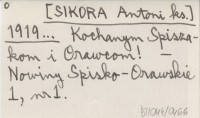 0
[SIKORA Antoni ks.]
1919... Kochanym Spisza-
kom i Orawcom! —
Nowiny Spisko-Orawskie
1, nr 1.